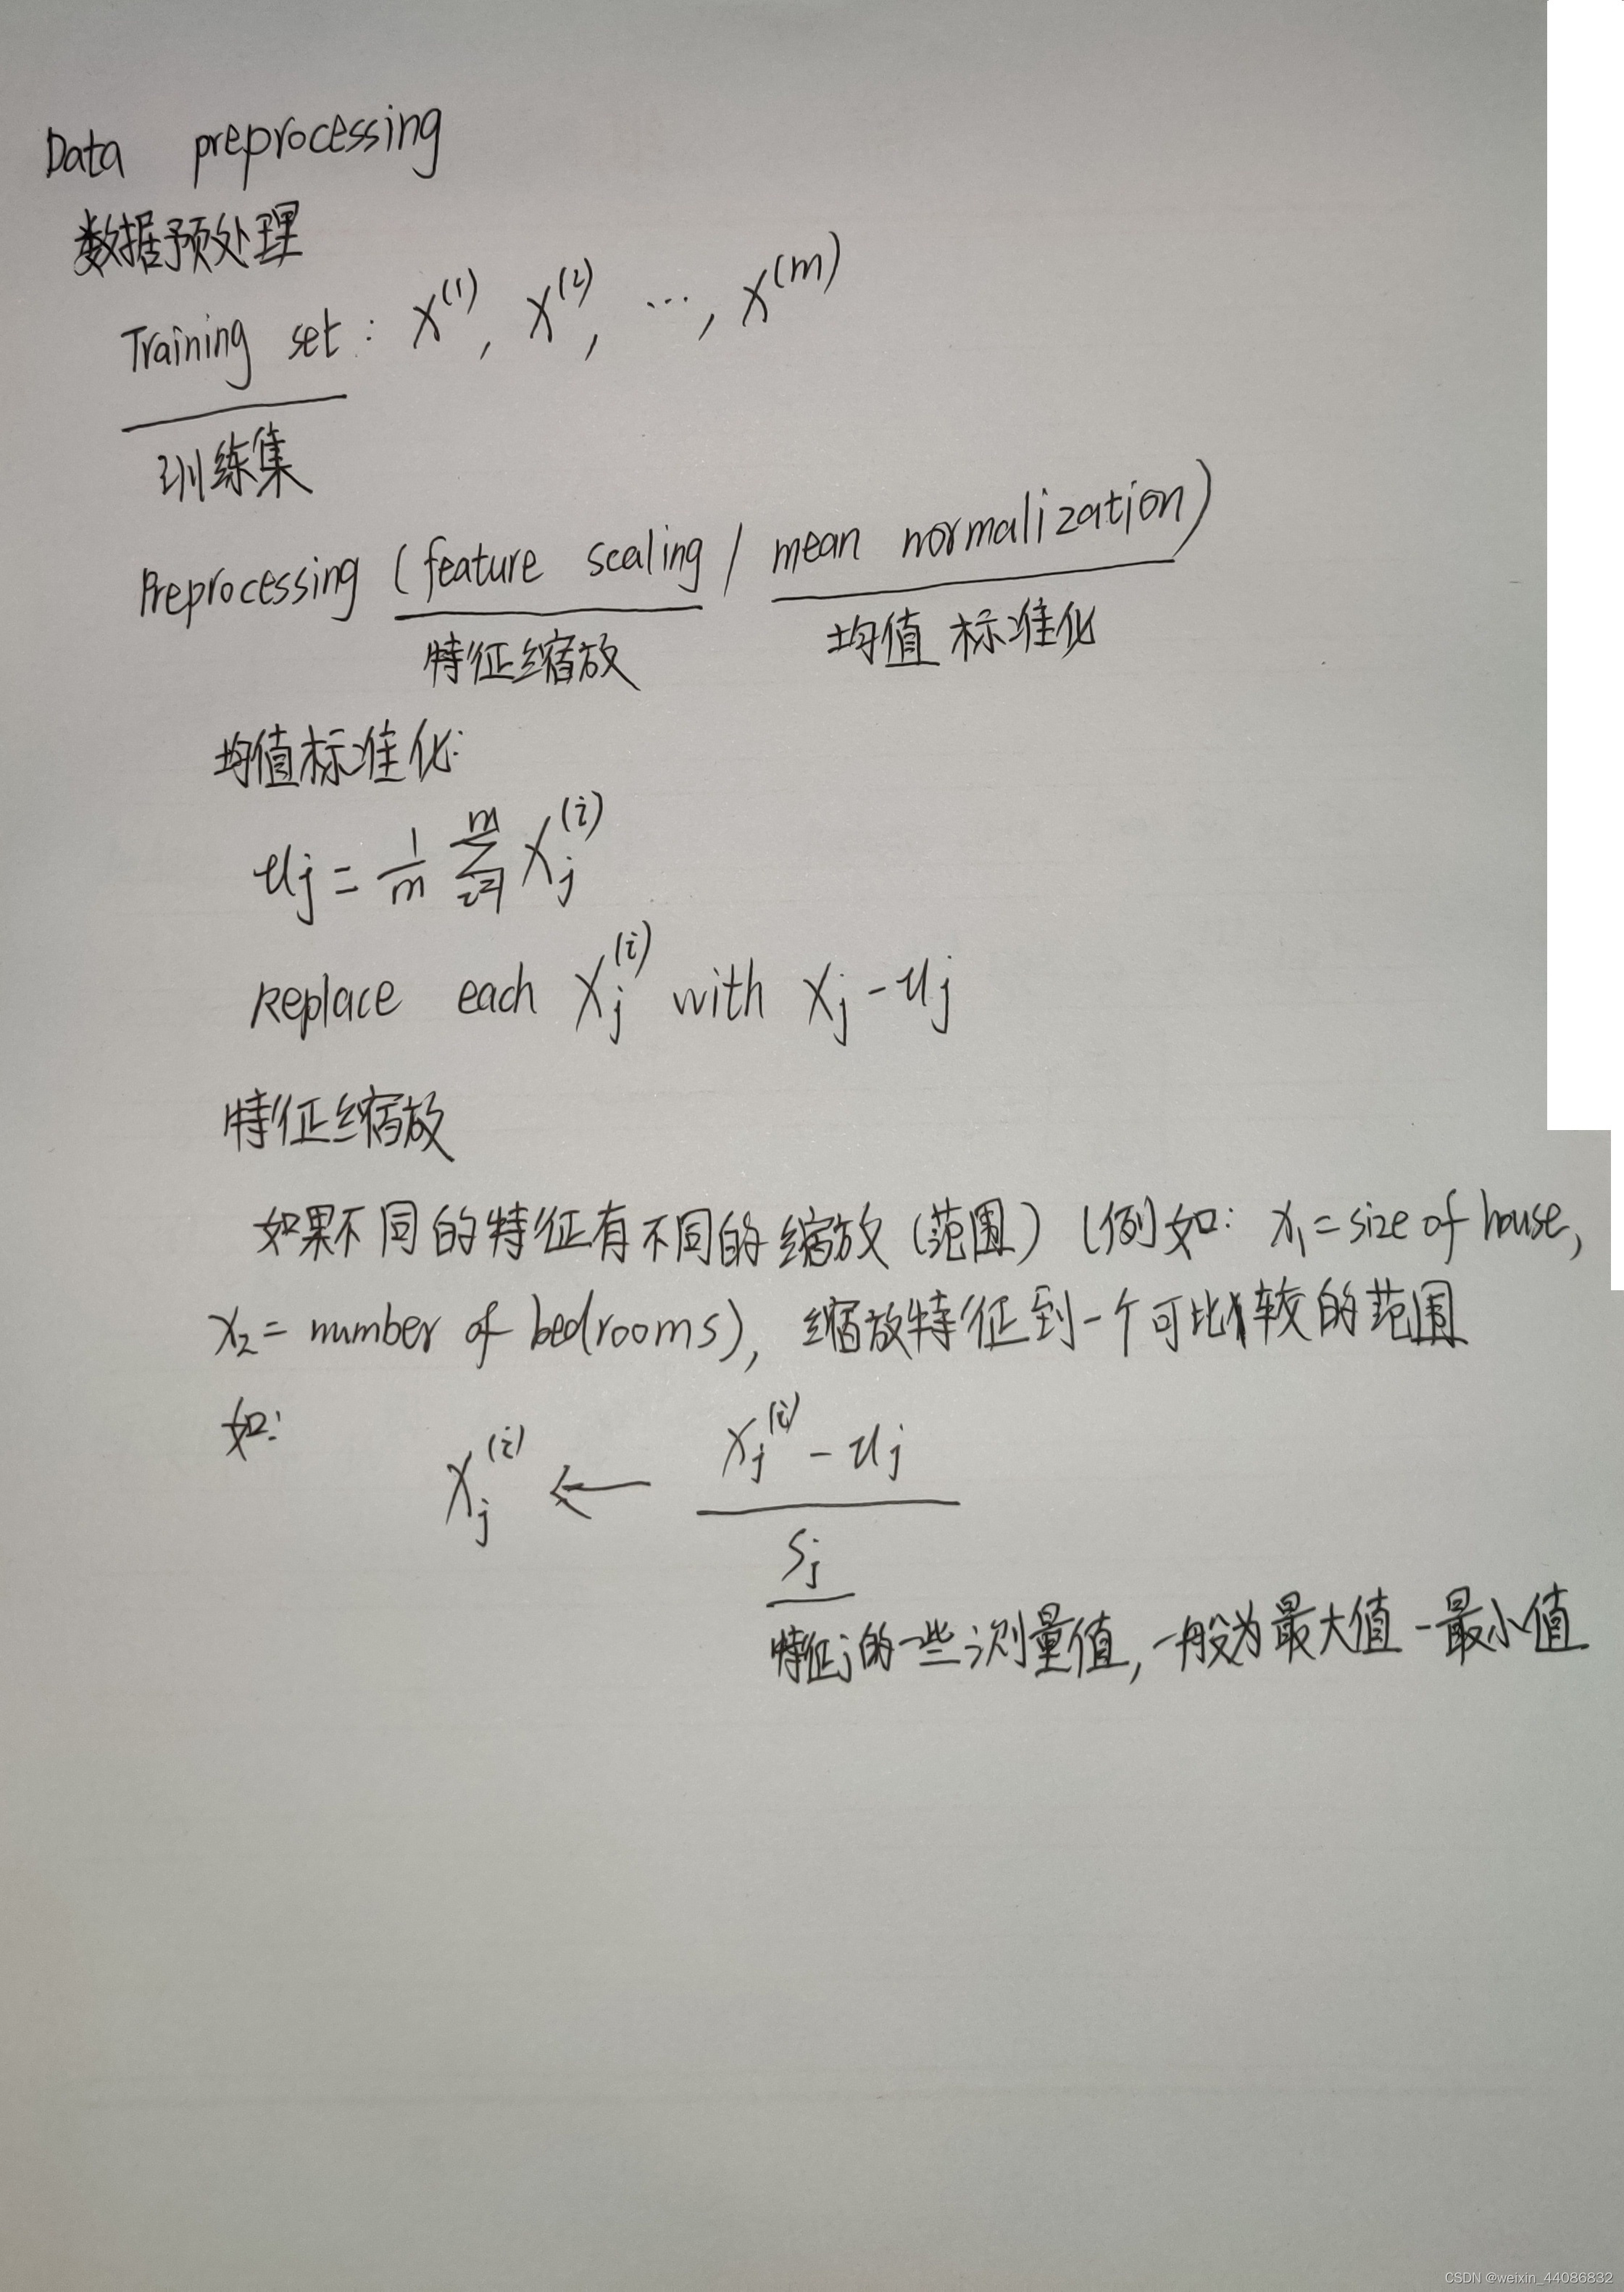 Data preprocessing
数据预处理
Training set: x^(1), x^(2), ..., x^(m)
训练集
Preprocessing (feature scaling / mean normalization)
特征缩放 均值标准化
均值标准化:
u_j = 1/m Σ_{i=1}^{m} x_j^(i)
Replace each x_j^(i) with x_j - u_j
特征缩放
如果不同的特征有不同的缩放(范围)(例如: x_1 = size of house,
x_2 = number of bedrooms), 缩放特征到一个可比较的范围
如:
x_j^(i) ← (x_j^(i) - u_j) / s_j
特征j的一些测量值, 一般为最大值-最小值
CSDN @weixin_44086832